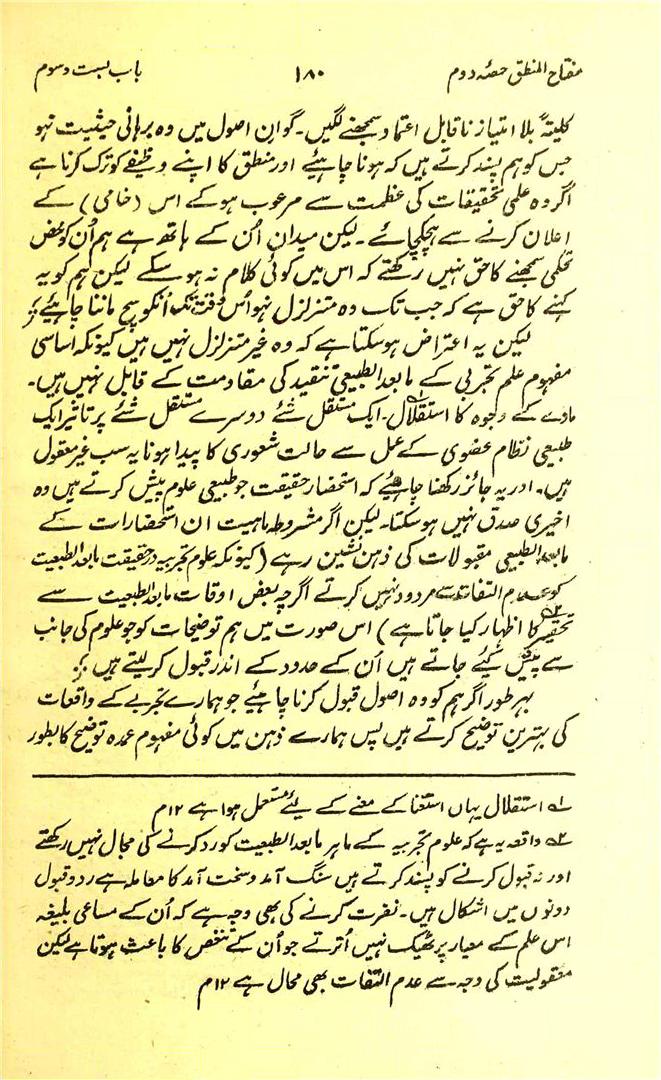 مفتاح المنطق حصۂ دوم ۱۸۰ باب بست و سوم
کلیتہً بلا امتیاز ناقابل اعتماد سمجھنے لگیں۔ گو ان اصول میں وہ برہانی حیثیت نہو
جس کو ہم پسند کرتے ہیں کہ ہونا چاہیئے اور منطق کا اپنے وظیفے کو ترک کرنا ہے
اگر وہ علمی تحقیقات کی عظمت سے مرعوب ہو کے اس (خامی) کے
اعلان کرنے سے ہچکچائے۔ لیکن میدان اُن کے ہاتھ ہے ہم اُن کو محض
تحکمی سمجھنے کا حق نہیں رکھتے کہ اس میں کوئی کلام نہ ہو سکے لیکن ہم کو یہ
کہنے کا حق ہے کہ جب تک وہ متزلزل نہو اُس وقت تک اُنکو سچ ماننا چاہیئے
لیکن یہ اعتراض ہو سکتا ہے کہ وہ غیر متزلزل نہیں ہیں کیونکہ اساسی
مفہوم علم تجربی کے مابعد الطبیعی تنقید کی مقاومت کے قابل نہیں ہیں۔
مادے کے وجوہ کا استقلال۔ ایک مستقل شئے دوسرے مستقل شئے پر تاثیر ایک
طبیعی نظام عضوی کے عمل سے حالت شعوری کا پیدا ہونا یہ سب غیر معقول
ہیں۔ اور یہ جائز رکھنا چاہیئے کہ استحضار حقیقت جو طبیعی علوم پیش کرتے ہیں وہ
اخیری صدق نہیں ہو سکتا۔ لیکن اگر مشروطہ ماہیت ان استحضارات کے
مابعد الطبیعی مقبولات کی ذہن نشین رہے (کیونکہ علوم تجربیہ درحقیقت مابعد الطبیعت
کو عدم التفات سے مردود نہیں کرتے اگرچہ بعض اوقات مابعد الطبیعت سے
تحقیر۲ کا اظہار کیا جاتا ہے) اس صورت میں ہم توضیحات کو جو علوم کی جانب
سے پیش کیئے جاتے ہیں اُن کے حدود کے اندر قبول کر لیتے ہیں
بہر طور اگر ہم کو وہ اصول قبول کرنا چاہیئے جو ہمارے تجربے کے واقعات
کی بہترین توضیح کرتے ہیں پس ہمارے ذہن میں کوئی مفہوم عمدہ توضیح کا بطور
۱؎ استقلال یہاں استغنا کے معنے کے لیئے مستعمل ہوا ہے ۱۲ م
۲؎ واقعہ یہ ہے کہ علوم تجربیہ کے ماہر مابعد الطبیعت کو رد کرنے کی مجال نہیں رکھتے
اور نہ قبول کرنے کو پسند کرتے ہیں سنگ آمد و سخت آمد کا معاملہ ہے رد و قبول
دونوں میں اشکال ہیں۔ نفرت کرنے کی بھی وجہ ہے کہ اُن کے مساعی بلیغہ
اس علم کے معیار پر ٹھیک نہیں اُترتے جو اُن کے تنغص کا باعث ہوتا ہے لیکن
معقولیت کی وجہ سے عدم التفات بھی محال ہے ۱۲ م